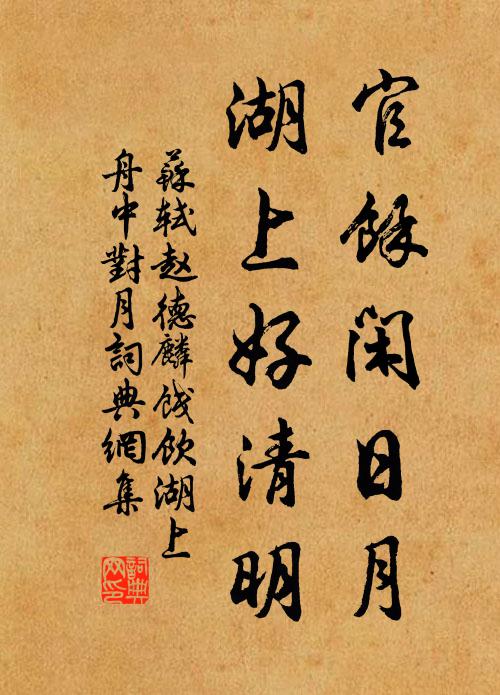 官餘閑日月
湖上好清明
蘇軾赵德麟餞飲湖上
舟中對月詞典網集
詞典网印